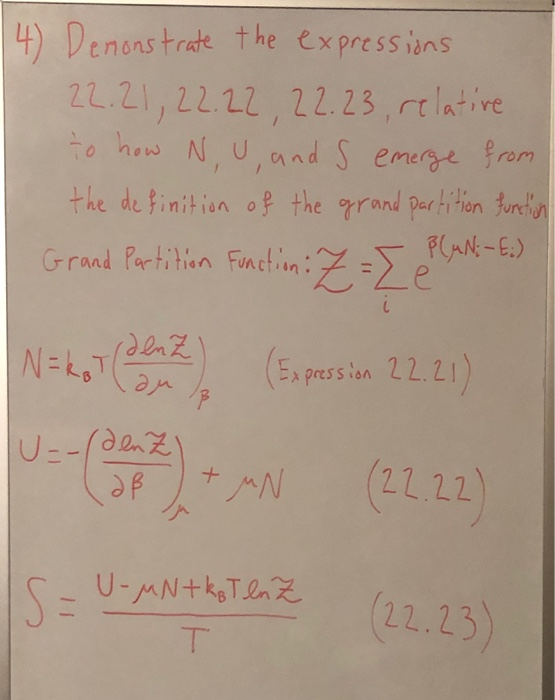 4) Demonstrate the expressions
22.21, 22.22, 22.23, relative
to how N, U, and S emerge from
the definition of the grand partition function
Grand Partition Function: Z = Σ_i e^{β(μN_i - E_i)}
N = k_B T (∂lnZ/∂μ)_β (Expression 22.21)
U = -(∂lnZ/∂β)_μ + μN (22.22)
S = (U - μN + k_B T lnZ)/T (22.23)